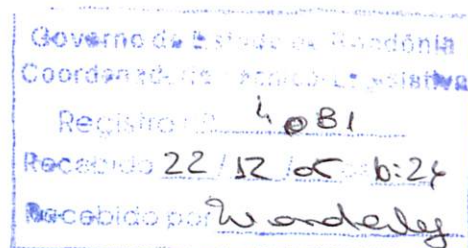 Governo do Estado de Rondônia
Coordenadoria Técnico Legislativa
Registro nº 4081
Recebido 22/12/05
Recebido por Wanderley